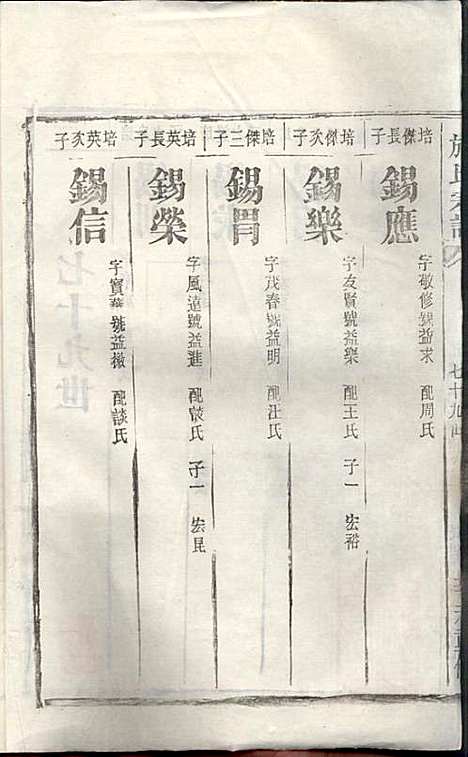 施氏宗譜
七十九世
培傑長子
錫應
字敬修號益求 配周氏
培傑次子
錫樂
字友賢號益樂 配王氏 子一 宏裕
培傑三子
錫胃
字茂春號益明 配汪氏
培英長子
錫榮
字風遠號益進 配談氏 子一 宏昆
培英次子
錫信
字寶華號益徵 配談氏
七十九世